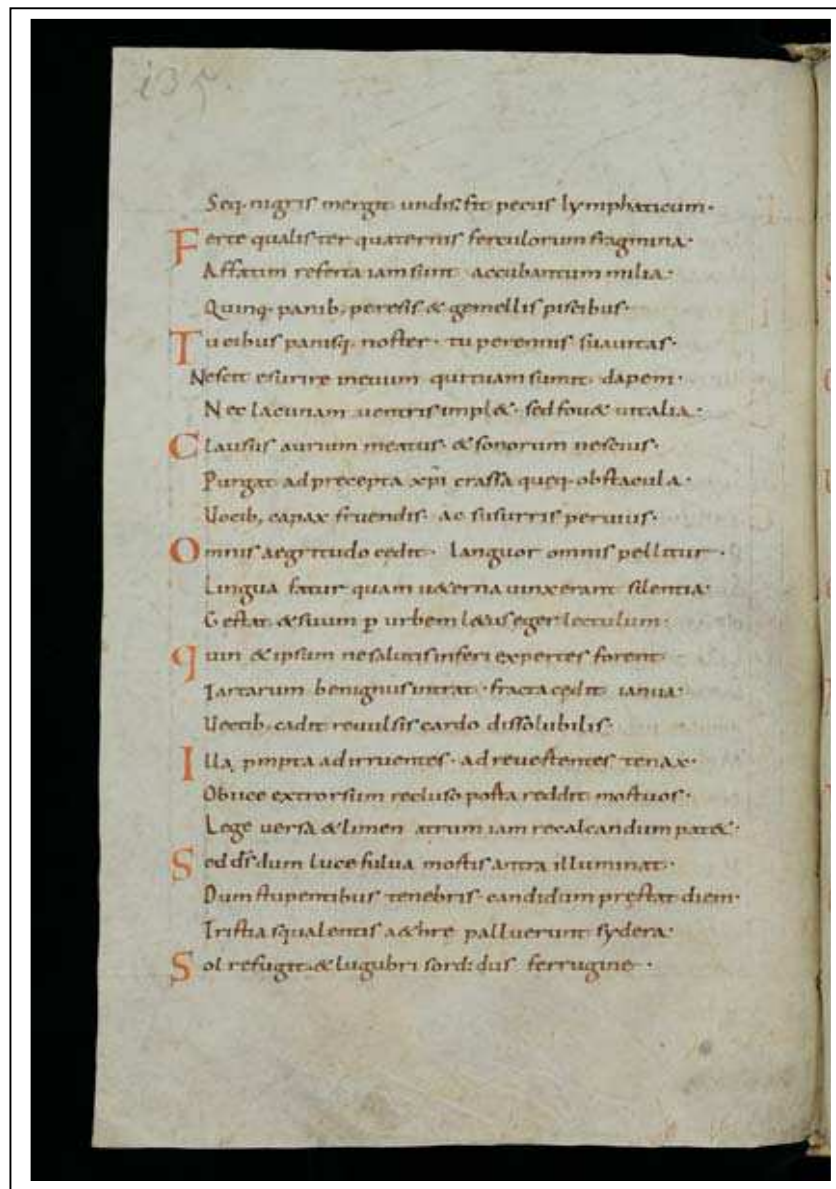 i35.
Seq. nigris mergit undis fit pecus lymphaticum.
Ferte qualis ter quaternis ferculorum fragmina.
Affatim referta iam sunt accubantum milia.
Quinq. panib; peresis & gemellis piscibus.
Tu cibus panisq. noster. tu perennis suauitas.
Nescit esurire in euum qui tuam sumit dapem.
Nec lacunam uentris impl&. sed fou& uitalia.
Clausus aurium meatus. & sonorum nescius.
Purgat ad precepta xp̄i crassa queq. obstacula.
Uocib; capax fruendis. ac susurris peruius.
Omnis aegritudo cedit. languor omnis pellitur.
Lingua fatur quam u&erna uinxerant silentia.
Gestat & suum p urbem l&us eger lectulum.
quin & ipsum ne salutis inferi expertes forent
Tartarum benignus intrat. fracta cedit ianua.
Uectib; cadit reuulsis cardo dissolubilis.
Illa, pmpta ad irruentes. ad reuertentes tenax.
Obice extrorsum recluso porta reddit mortuos.
Lege uersa & limen atrum iam recalcandum pat&.
Sed d̄s dum luce fulua mortis antra illuminat.
Dum stupentibus tenebris. candidum prestat diem.
Tristia squalentis a&hre palluerunt sydera.
Sol refugit. & lugubri sordidus ferrugine.